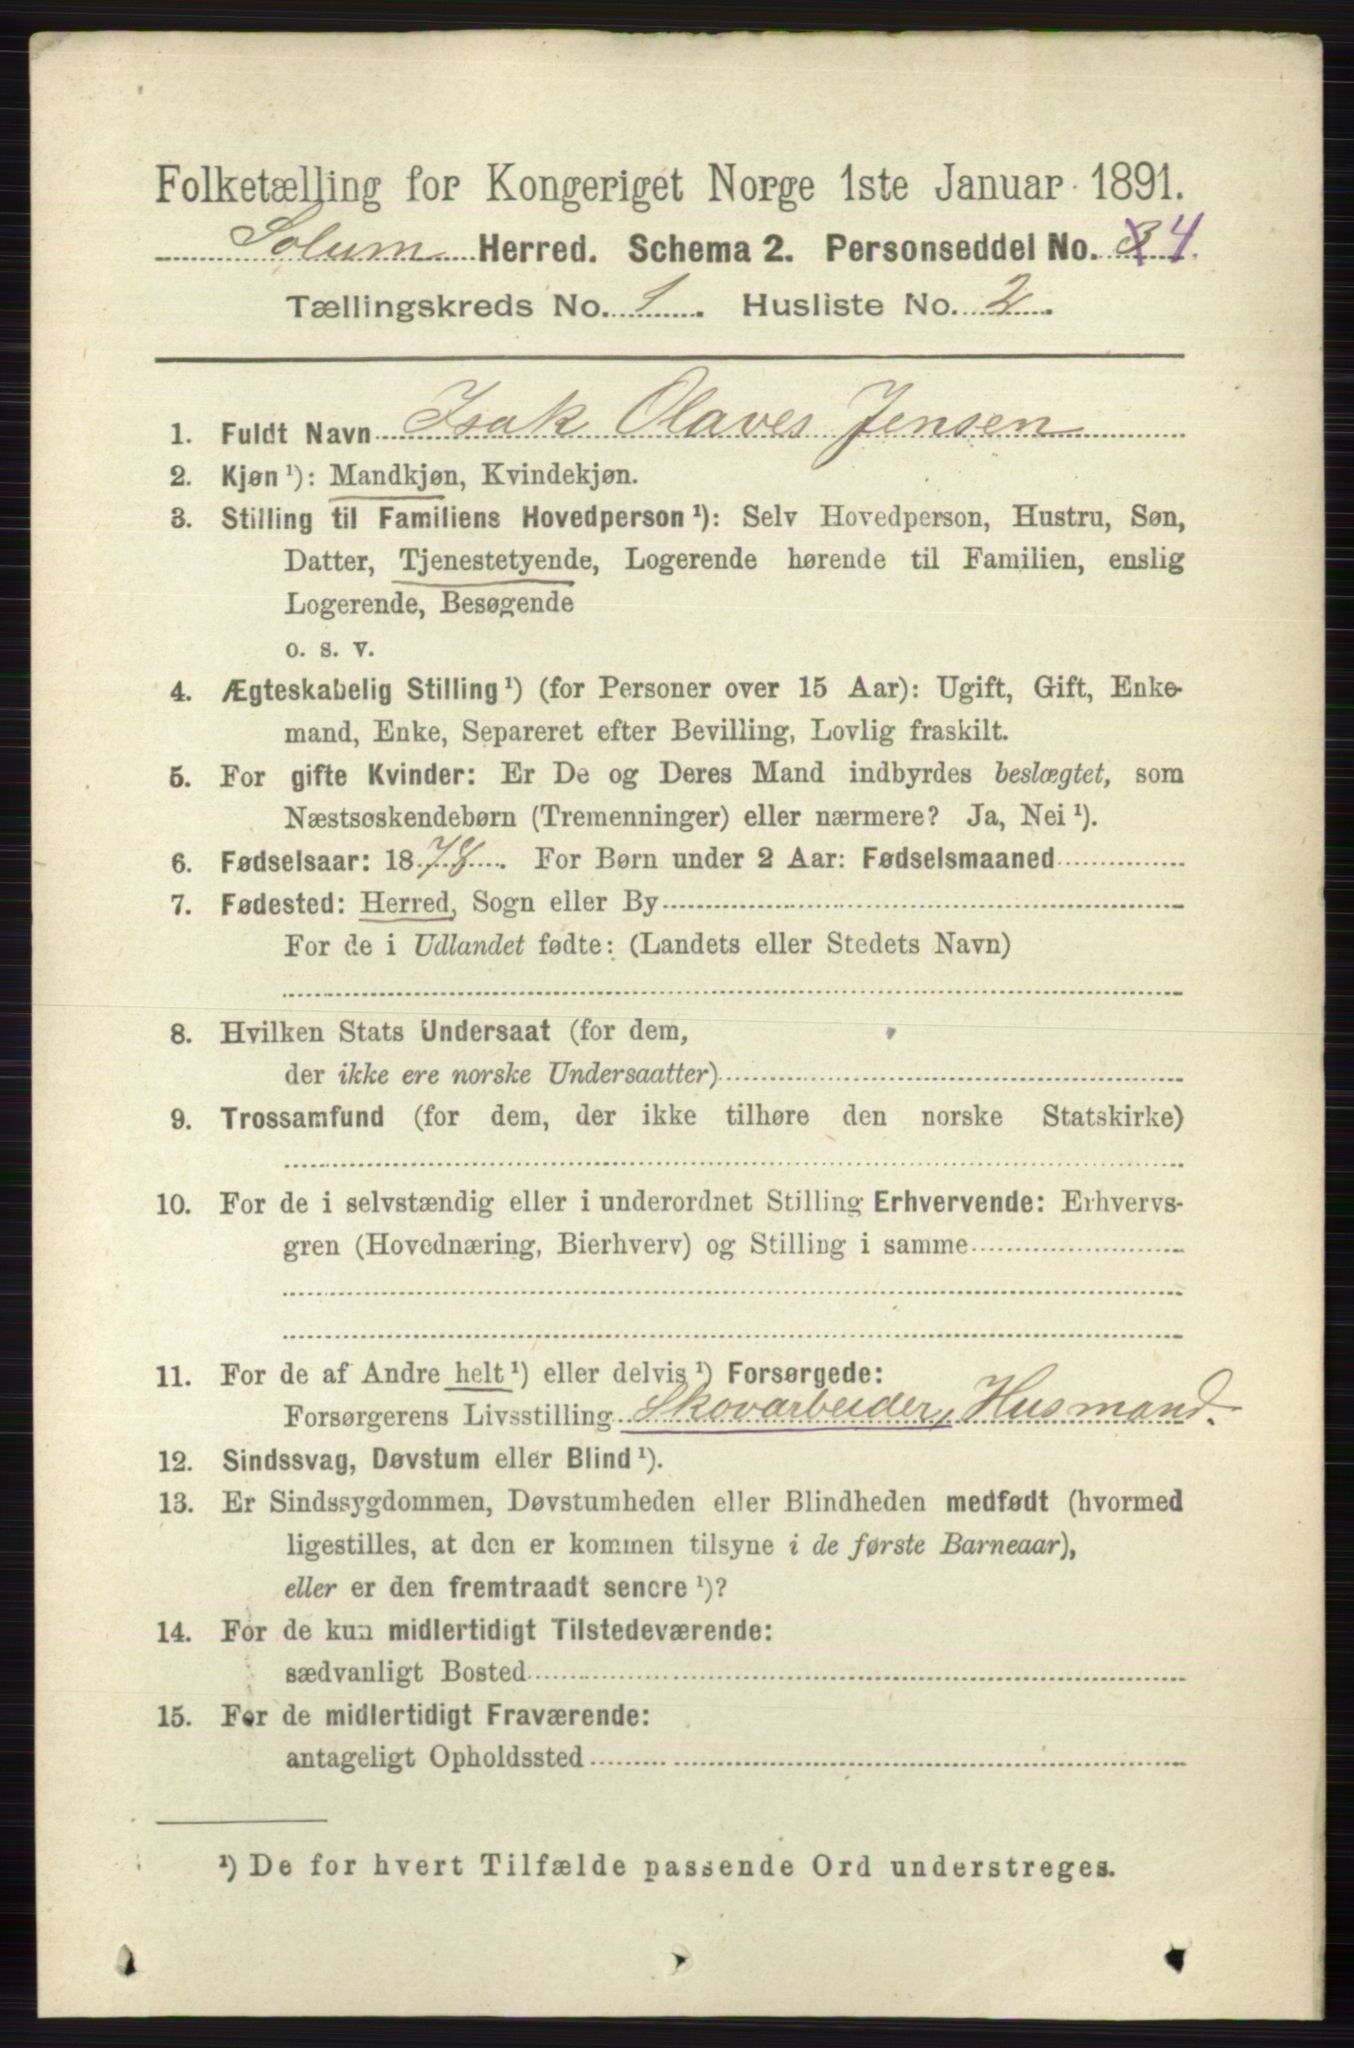 Folketælling for Kongeriget Norge 1ste Januar 1891.
Solum Herred. Schema 2. Personseddel No. 3 4
Tællingskreds No. 1. Husliste No. 2.
1. Fuldt Navn Isak Olaves Jensen
2. Kjøn¹): Mandkjøn, Kvindekjøn.
3. Stilling til Familiens Hovedperson¹): Selv Hovedperson, Hustru, Søn,
Datter, Tjenestetyende, Logerende hørende til Familien, enslig
Logerende, Besøgende
o. s. v.
4. Ægteskabelig Stilling¹) (for Personer over 15 Aar): Ugift, Gift, Enke-
mand, Enke, Separeret efter Bevilling, Lovlig fraskilt.
5. For gifte Kvinder: Er De og Deres Mand indbyrdes beslægtet, som
Næstsøskendebørn (Tremenninger) eller nærmere? Ja, Nei¹).
6. Fødselsaar: 1878. For Børn under 2 Aar: Fødselsmaaned
7. Fødested: Herred, Sogn eller By
For de i Udlandet fødte: (Landets eller Stedets Navn)
8. Hvilken Stats Undersaat (for dem,
der ikke ere norske Undersaatter)
9. Trossamfund (for dem, der ikke tilhøre den norske Statskirke)
10. For de i selvstændig eller i underordnet Stilling Erhvervende: Erhvervs-
gren (Hovednæring, Bierhverv) og Stilling i samme
11. For de af Andre helt¹) eller delvis¹) Forsørgede:
Forsørgerens Livsstilling Skovarbeider, Husmand.
12. Sindssvag, Døvstum eller Blind¹).
13. Er Sindssygdommen, Døvstumheden eller Blindheden medfødt (hvormed
ligestilles, at den er kommen tilsyne i de første Barneaar),
eller er den fremtraadt senere¹)?
14. For de kun midlertidigt Tilstedeværende:
sædvanligt Bosted
15. For de midlertidigt Fraværende:
antageligt Opholdssted
¹) De for hvert Tilfælde passende Ord understreges.